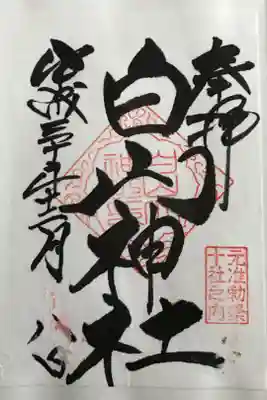 奉拝
白山神社
平成三十年十一月八日
元准勅祭
十社之内